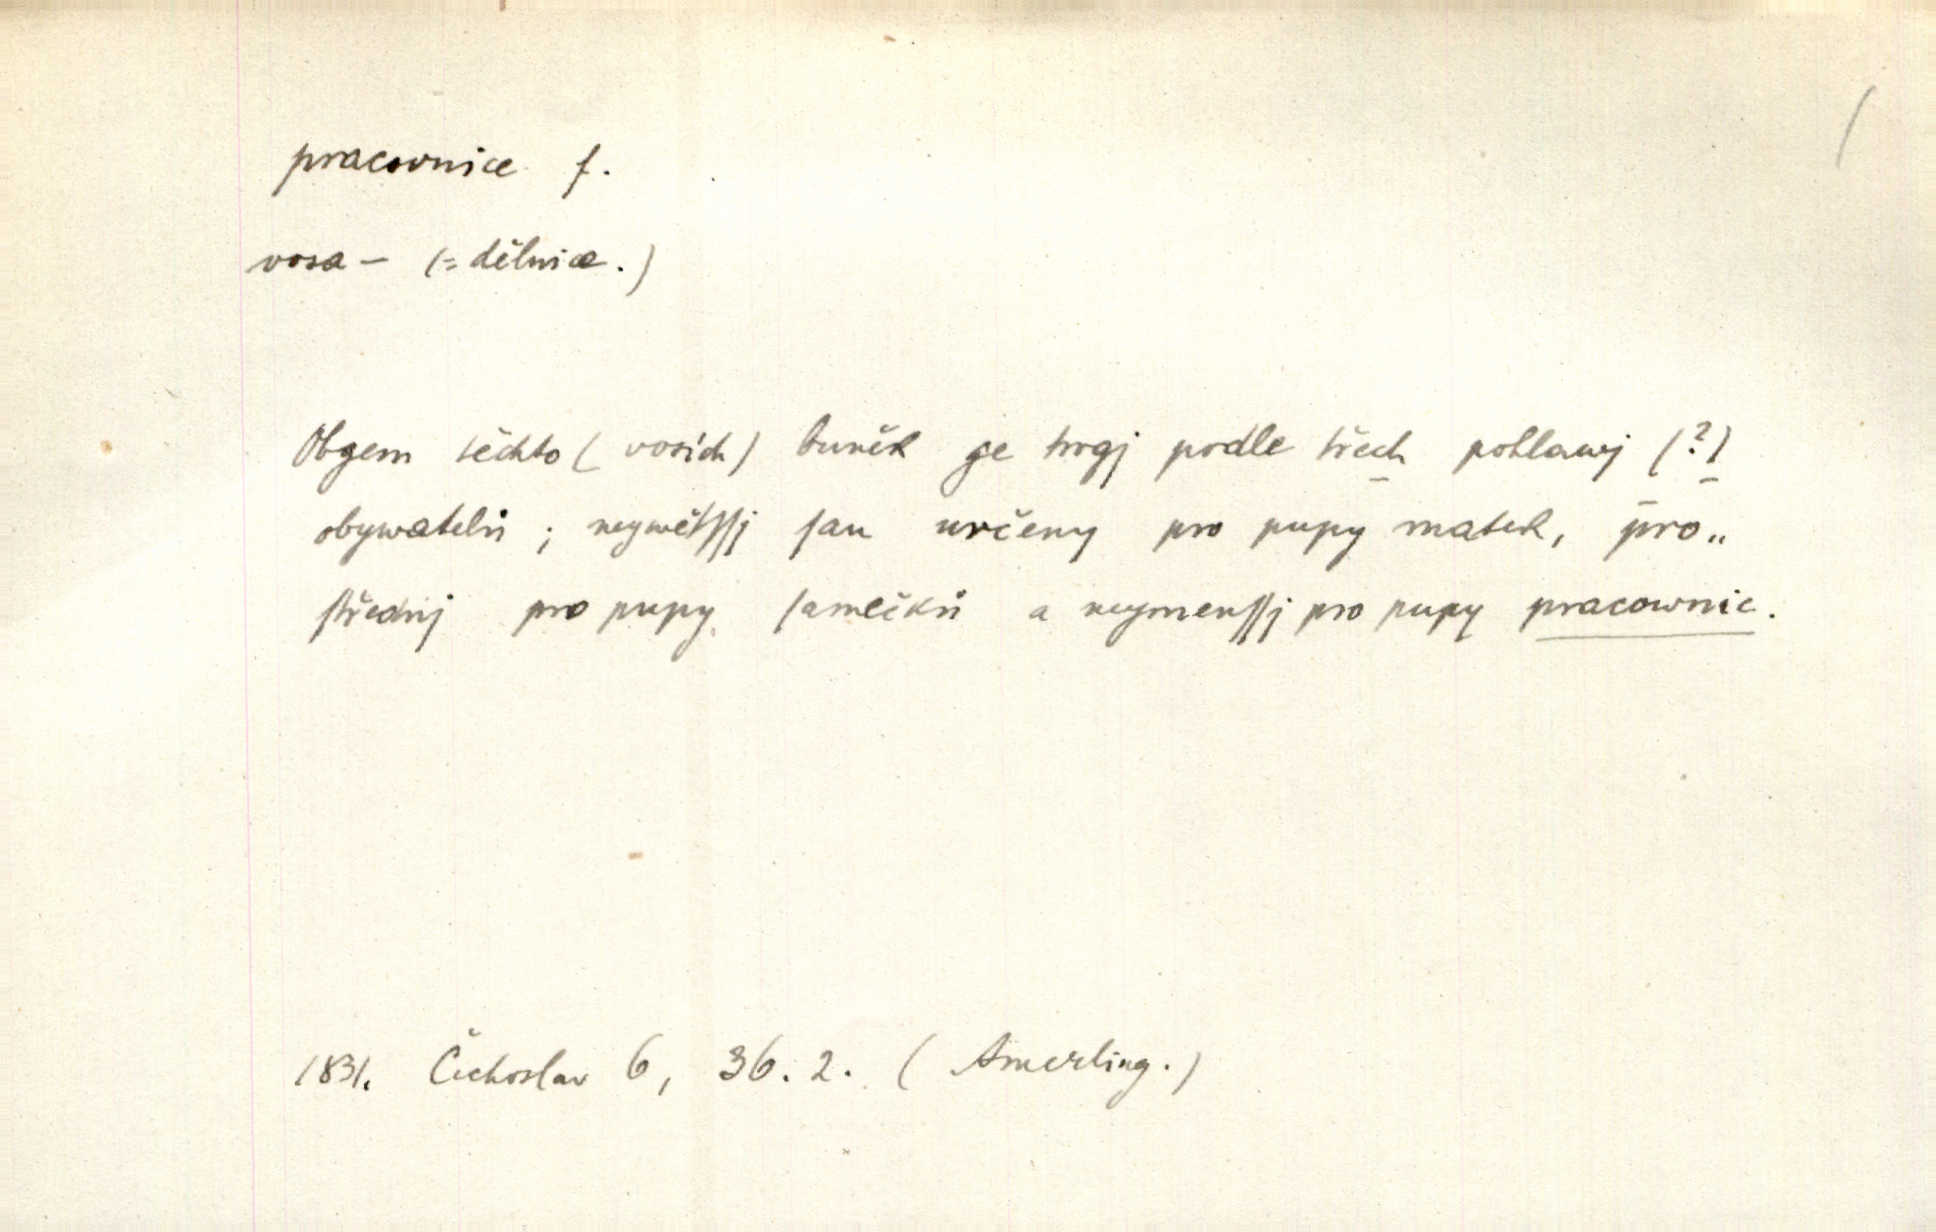 pracovnice f.
vosa – (= dělnice.)
Obgem těchto (vosích) buněk ge trogj podle třech pohlawj (?)
obywatelů ; neywětſſj ſau určeny pro pupy matek, pro„
ſtřednj pro pupy ſamečků a neymenſſj pro pupy pracownic.
1831. Čechoslav 6, 36. 2. (Amerling.)